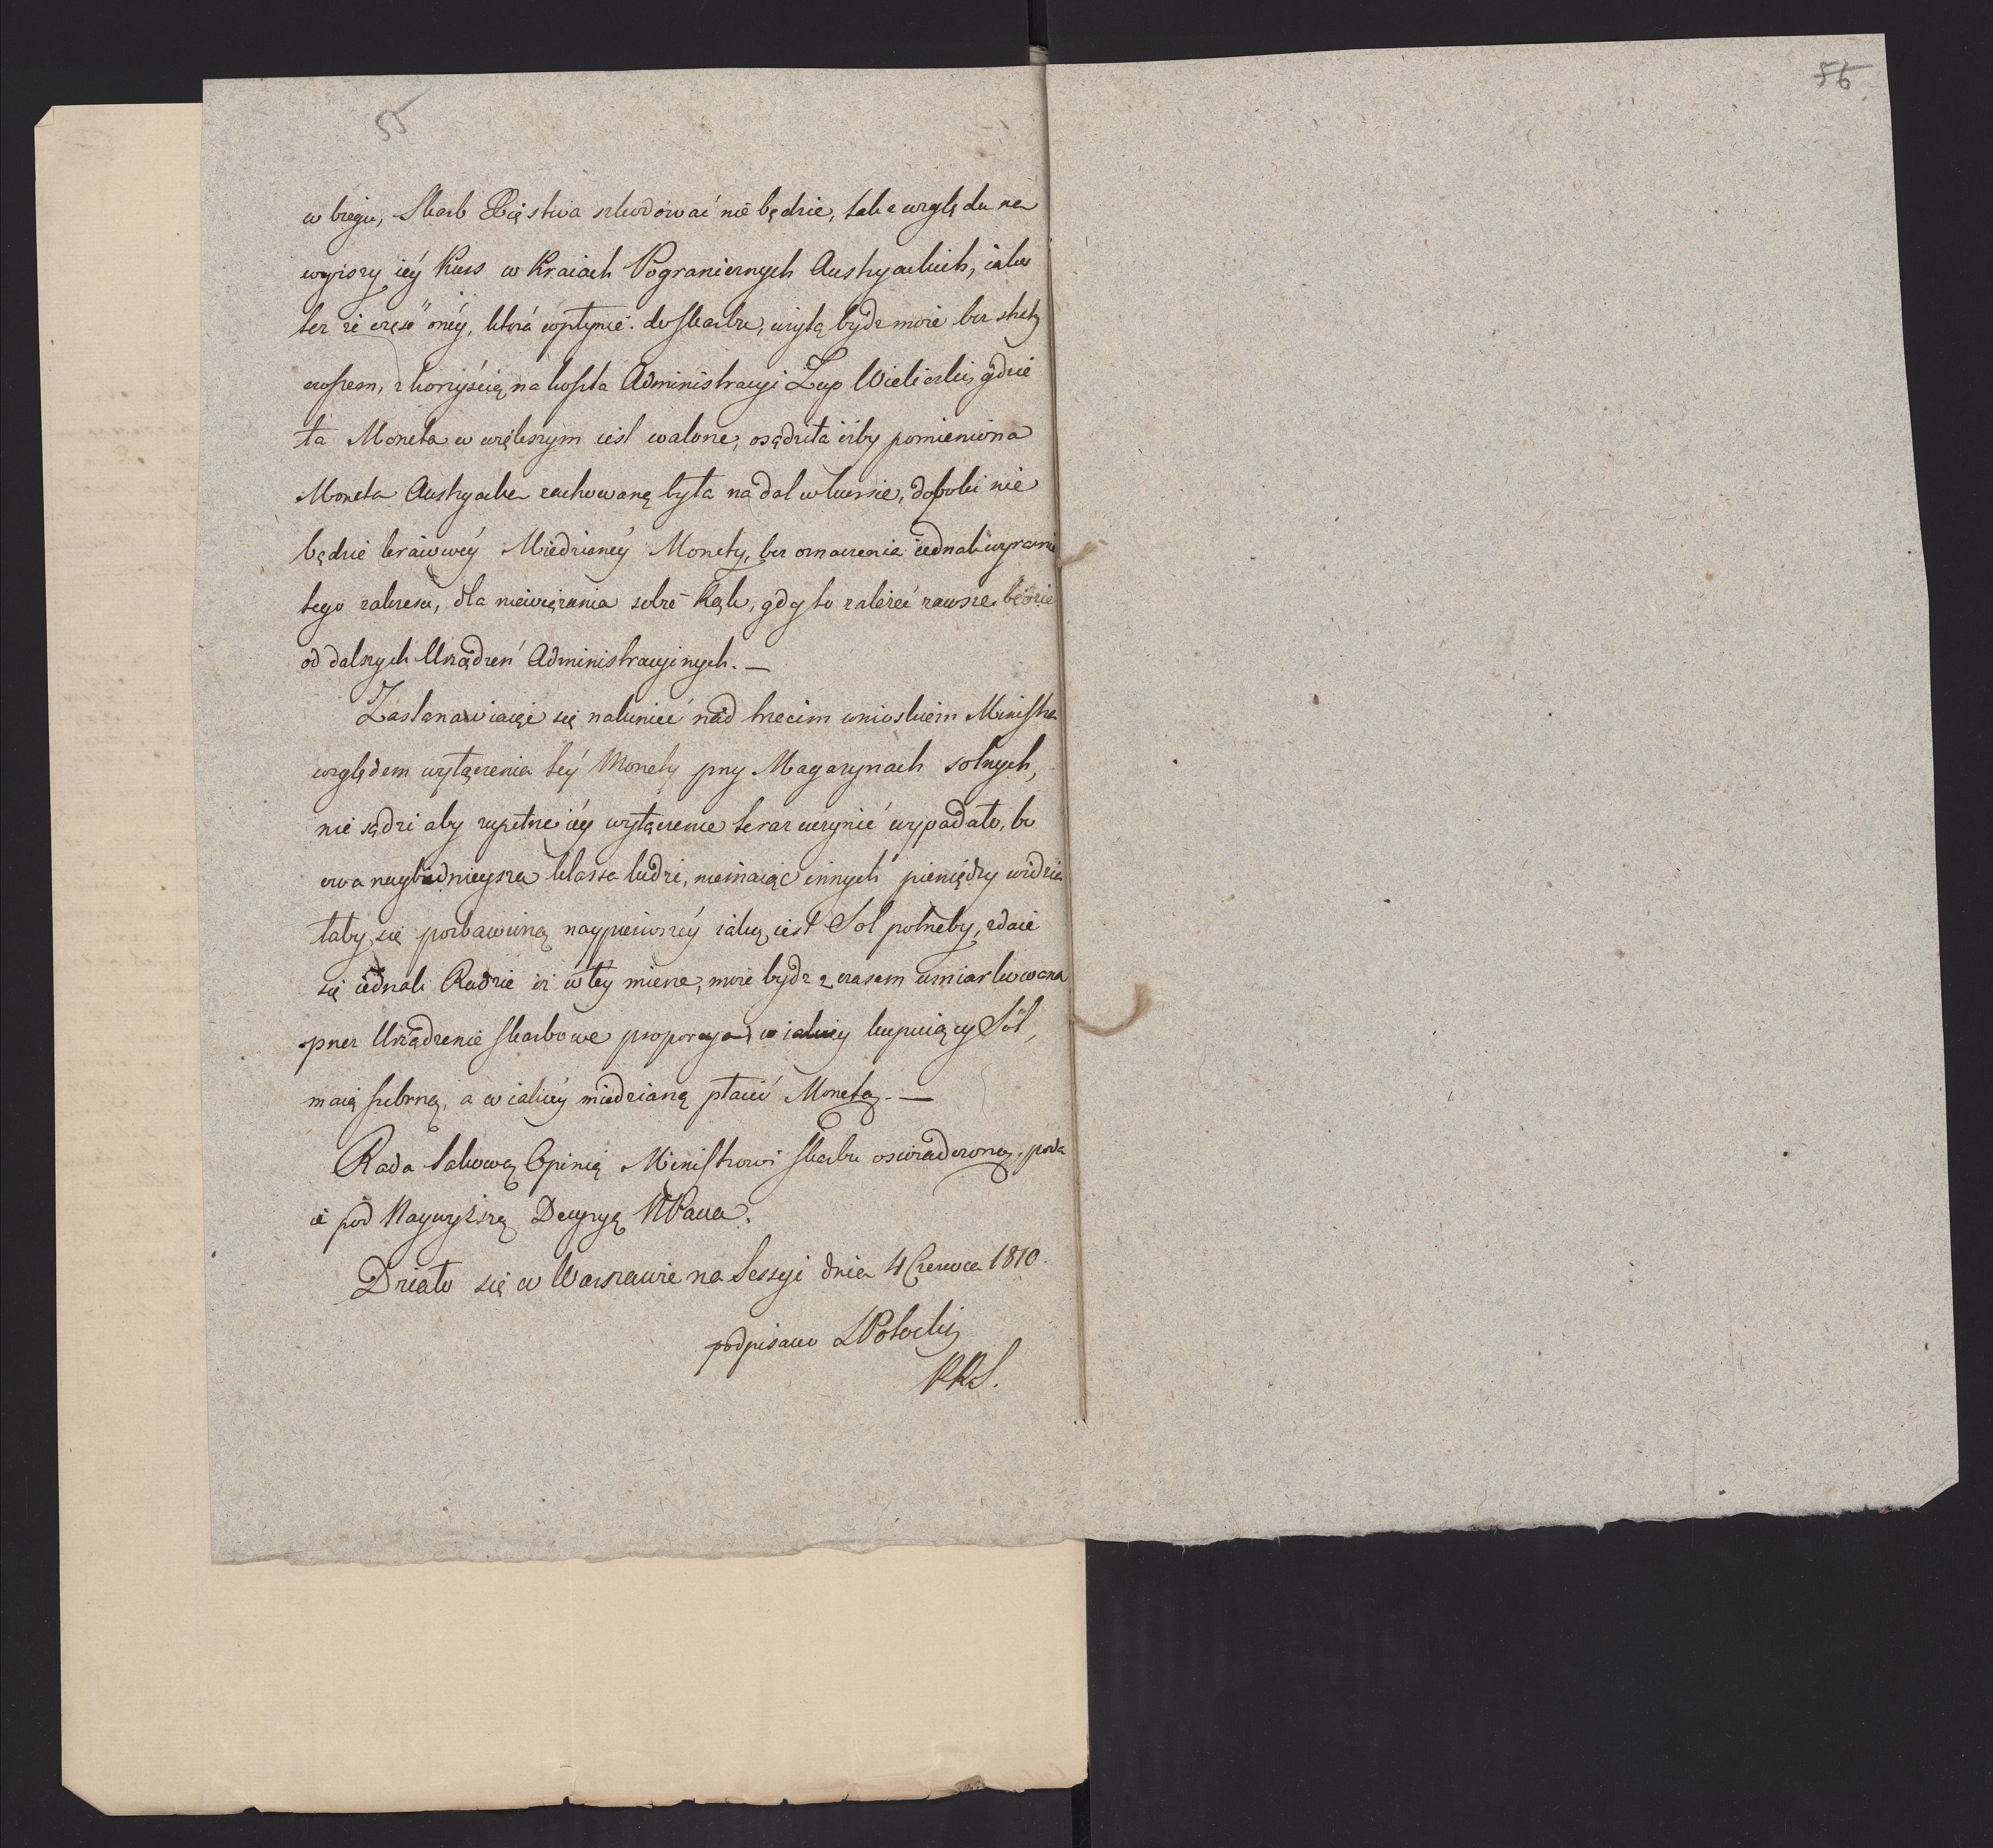 55
56
w biegu, Skarb Xięstwa szkodować nie będzie, tak z względu na
wyższy iéy Kurs w Kraiach Pogranicznych Austryackich, iako
też że część onéy, która wpłynie do skarbu, użytą bydz może bez straty
owszem, z korzyścią na koszta Administracyi Zup Wieliczki, gdzie
ta Moneta w większym iest walorze, osądziła iżby pomieniona
Moneta Austryacka zachowaną była na dal w kursie, dopóki nie
będzie kraiowéy Miedzianéy Monety, bez oznaczenia iednak wyraźnie
tego zakresu, dla niewiązania sobie Rąk, gdy to zależeć zawsze będzie
od dalszych Urządzeń Administracyinych. —
Zastanawiaiąc się nakoniec nad trzecim wnioskiem Ministra
względem wyłączenia téy Monety przy Magazynach solnych,
nie sądzi aby zupełne iéy wyłączenie teraz uczynić wypadało, bo
owa naybiednieysza klassa ludzi, niemaiąc innych pieniędzy widzia
łaby się pozbawioną naypierwszéy iaką iest Sol potrzeby, zdaie
się iednak Radzie iż w téy mierze, może bydz z czasem umiarkowana
przez Urządzenie skarbowe proporcya, w iakiéy kupuiący Sól,
maią srebrną, a w iakiéy miedzianą płacić Monetą. —
Rada takową Opinią Ministrowi skarbu oświadczoną, poda
ie pod Naywyższą Decyzyą NPana.
Działo się w Warszawie na Sessyi dnia 4 Czerwca 1810.
podpisano SPotocki
PRS.